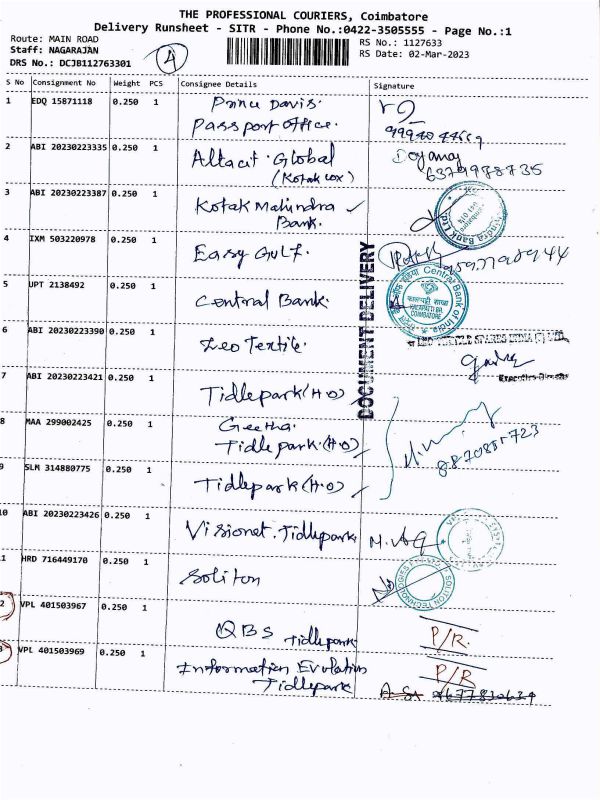 THE PROFESSIONAL COURIERS, Coimbatore
Delivery Runsheet - SITR - Phone No.:0422-3505555 - Page No.:1
Route: MAIN ROAD
Staff: NAGARAJAN
DRS No.: DCJB112763301
4
RS No.: 1127633
RS Date: 02-Mar-2023
S No Consignment No Weight PCS Consignee Details Signature
1 EDQ 15871118 0.250 1 Prince Davis.
Passport office.
2 ABI 20230223335 0.250 1 Altacit Global
(Kotak
6379988735
3 ABI 20230223387 0.250 1 Kotak Mahindra
Bank.
4 IXM 503220978 0.250 1 Easy Gulf.
5 UPT 2138492 0.250 1 Central Bank.
Central Bank of India
COIMBATORE
DOCUMENT DELIVERY
6 ABI 20230223390 0.250 1 Leo Textile.
Executive Director
7 ABI 20230223421 0.250 1 Tidlepark (H.O)
8 MAA 299002425 0.250 1 Geetha.
Tidlepark (H.O)
9 SLM 314880775 0.250 1 Tidlepark (H.O)
10 ABI 20230223426 0.250 1 Visionet. Tidlepark
11 HRD 716449170 0.250 1 Soliton
SOLITON TECHNOLOGIES
12 VPL 401503967 0.250 1 QBS Tidlepark P/R.
13 VPL 401503969 0.250 1 Information Evolution
Tidlepark
P/R